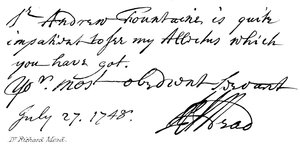 Sr. Andrew Fountaine is quite
impatient to see my Allectus which
you have got.
Yor. most obedient servant
July 27. 1748. RMead
Dr Richard Mead.